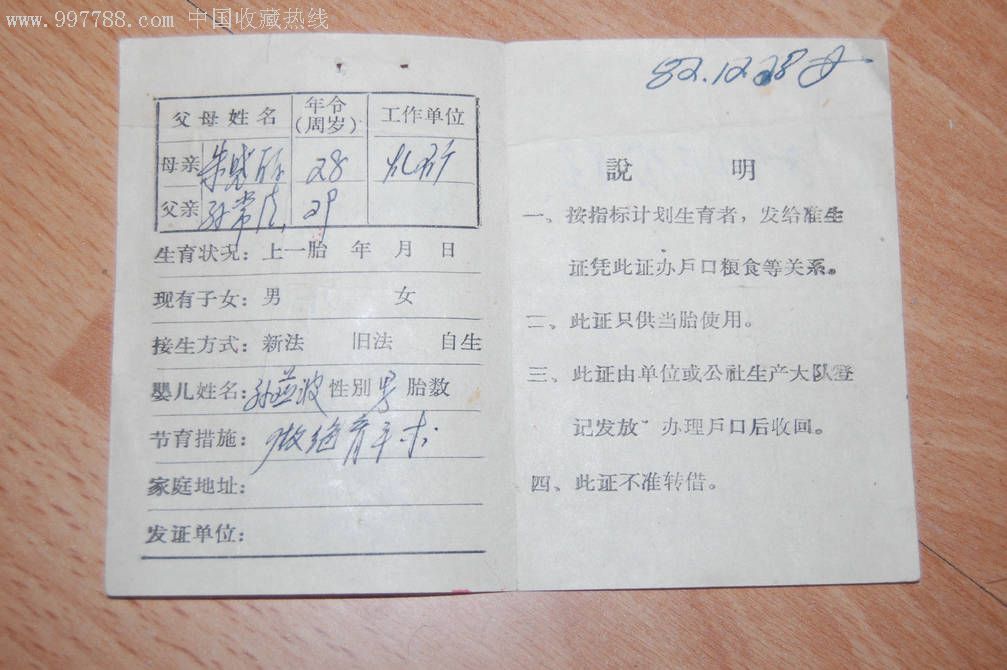 www.997788.com 中国收藏热线
父母姓名 年令(周岁) 工作单位
母亲 朱 28
父亲 孙常
生育状况：上一胎 年 月 日
现有子女：男 女
接生方式：新法 旧法 自生
婴儿姓名：孙 波 性别 男 胎数
节育措施：做绝育手术
家庭地址：
发证单位：
82.12.28
說 明
一、按指标计划生育者，发给准生
证凭此证办戶口粮食等关系。
二、此证只供当胎使用。
三、此证由单位或公社生产大队登
记发放 办理戶口后收回。
四、此证不准转借。